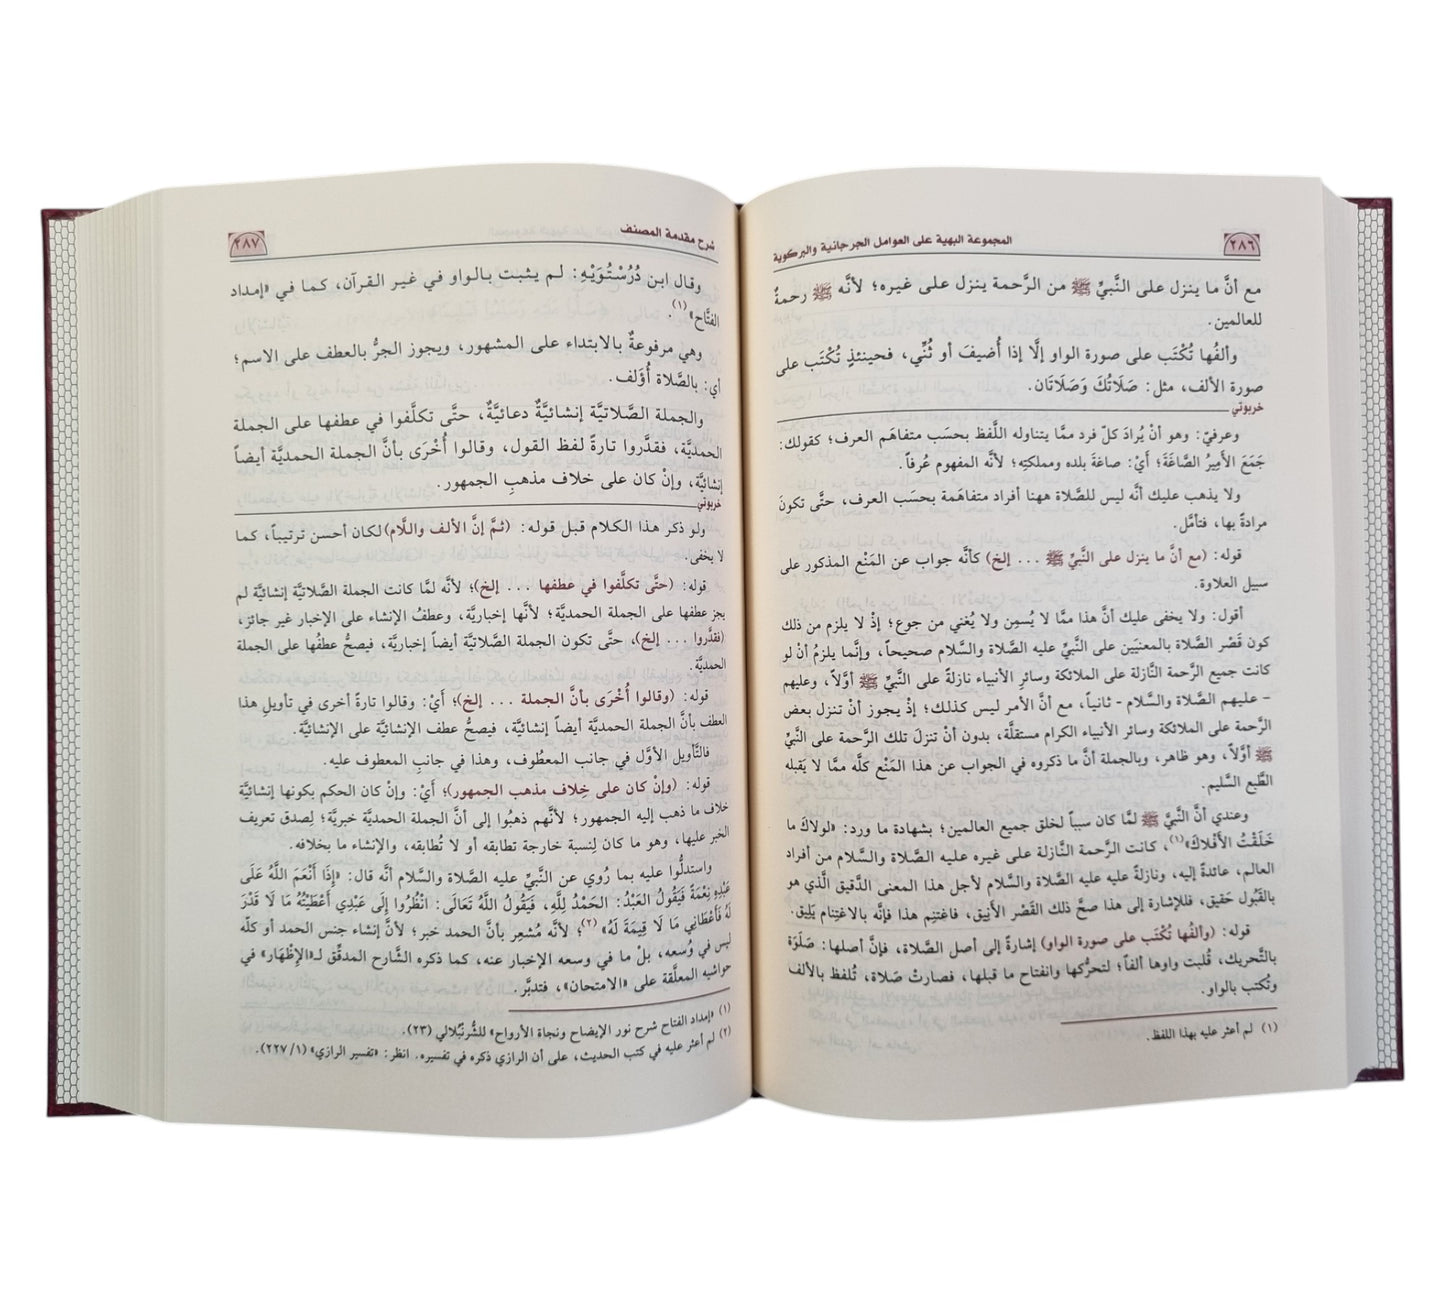 ٢٨٦
المجموعة البهية على العوامل الجرجانية والبركوية
مع أنَّ ما ينزل على النَّبيِّ ﷺ من الرَّحمة ينزل على غيره؛ لأنَّه ﷺ رحمةٌ
للعالمين.
وألفُها تُكْتَب على صورة الواو إلَّا إذا أُضيفَ أو ثُنِّي، فحينئذٍ تُكْتَب على
صورة الألف، مثل: صَلَاتُكَ وَصَلَاتَان.
خربوتي
وعرفيّ: وهو أنْ يُرادَ كلّ فرد ممَّا يتناوله اللَّفظ بحسَب متفاهَم العرف؛ كقولك:
جَمَعَ الأَمِيرُ الصَّاغَةَ؛ أيْ: صاغَةَ بلده ومملكتِه؛ لأنَّه المفهوم عُرفاً.
ولا يذهب عليك أنَّه ليس للصَّلاة ههنا أفراد متفاهَمة بحسَب العرف، حتَّى تكونَ
مرادةً بها، فتأمَّل.
قوله: (مع أنَّ ما ينزل على النَّبيِّ ﷺ ... إلخ) كأنَّه جواب عن المَنْع المذكور على
سبيل العلاوة.
أقول: ولا يخفى عليك أنَّ هذا ممَّا لا يُسمِن ولا يُغني من جوع؛ إذْ لا يلزم من ذلك
كون قَصْر الصَّلاة بالمعنيَين على النَّبيِّ عليه الصَّلاة والسَّلام صحيحاً، وإنَّما يلزمُ أنْ لو
كانت جميع الرَّحمة النَّازلة على الملائكة وسائرِ الأنبياء نازلةً على النَّبيِّ ﷺ أوَّلاً، وعليهم
- عليهم الصَّلاة والسَّلام - ثانياً، مع أنَّ الأمر ليس كذلك؛ إذْ يجوز أنْ تنزل بعض
الرَّحمة على الملائكة وسائر الأنبياء الكرام مستقلَّة، بدون أنْ تنزلَ تلك الرَّحمة على النَّبيِّ
ﷺ أوَّلاً، وهو ظاهر، وبالجملة أنَّ ما ذكروه في الجواب عن هذا المَنْع كلَّه ممَّا لا يَقبله
الطَّبع السَّليم.
وعندي أنَّ النَّبيَّ ﷺ لمَّا كان سبباً لخلق جميع العالمين؛ بشهادة ما ورد: «لولاكَ ما
خَلَقْتُ الأَفْلاكَ»(١)، كانت الرَّحمة النَّازلة على غيره عليه الصَّلاة والسَّلام من أفراد
العالم، عائدةً إليه، ونازلةً عليه عليه الصَّلاة والسَّلام لأجل هذا المعنى الدَّقيق الَّذي هو
بالقَبُول حَقيق، فللإشارة إلى هذا صحَّ ذلك القَصْر الأَنِيق، فاغتنِم هذا فإنَّه بالاغتِنام يَلِيق.
قوله: (وألفُها تُكْتَب على صورة الواو) إشارةً إلى أصل الصَّلاة، فإنَّ أصلها: صَلَوَة
بالتَّحريك، قُلبت واوها ألفاً؛ لتحرُّكها وانفتاح ما قبلها، فصارتْ صَلاة، تُلفظ بالألف
وتُكتب بالواو.
(١) لم أعثر عليه بهذا اللفظ.
شرح مقدمة المصنف
٢٨٧
وقال ابن دُرُسْتُوَيْهِ: لم يثبت بالواو في غير القرآن، كما في «إمداد
الفتَّاح»(١).
وهي مرفوعةٌ بالابتداء على المشهور، ويجوز الجرُّ بالعطف على الاسم؛
أي: بالصَّلاة أُؤَلف.
والجملة الصَّلاتيَّة إنشائيَّةٌ دعائيَّةٌ، حتَّى تكلَّفوا في عطفها على الجملة
الحمديَّة، فقدَّروا تارةً لفظ القول، وقالوا أُخْرَى بأنَّ الجملة الحمديَّة أيضاً
إنشائيَّة، وإنْ كان على خلاف مذهبِ الجمهور.
خربوتي
ولو ذكر هذا الكلام قبل قوله: (ثمَّ إنَّ الألف واللَّام) لكان أحسن ترتيباً، كما
لا يخفى.
قوله: (حتَّى تكلَّفوا في عطفها ... إلخ)؛ لأنَّه لمَّا كانت الجملة الصَّلاتيَّة إنشائيَّة لم
يجز عطفها على الجملة الحمديَّة؛ لأنَّها إخباريَّة، وعطفُ الإنشاء على الإخبار غير جائز،
(فقدَّروا ... إلخ)، حتَّى تكون الجملة الصَّلاتيَّة أيضاً إخباريَّة، فيصحُّ عطفُها على الجملة
الحمديَّة.
قوله: (وقالوا أُخْرَى بأنَّ الجملة ... إلخ)؛ أيْ: وقالوا تارةً أخرى في تأويلِ هذا
العطف بأنَّ الجملة الحمديَّة أيضاً إنشائيَّة، فيصحُّ عطف الإنشائيَّة على الإنشائيَّة.
فالتَّأويل الأوَّل في جانب المعطُوف، وهذا في جانبِ المعطوف عليه.
قوله: (وإنْ كان على خِلاف مذهب الجمهور)؛ أيْ: وإنْ كان الحكم بكونها إنشائيَّة
خلاف ما ذهب إليه الجمهور؛ لأنَّهم ذهبُوا إلى أنَّ الجملة الحمديَّة خبريَّة؛ لِصدق تعريف
الخبر عليها، وهو ما كان لِنسبة خارجة تطابقه أو لا تُطابقه، والإنشاء ما بخلافه.
واستدلُّوا عليه بما رُوي عن النَّبيِّ عليه الصَّلاة والسَّلام أنَّه قال: «إِذَا أَنْعَمَ اللَّهُ عَلَى
عَبْدِهِ نِعْمَةً فَيَقُولُ العَبْدُ: الحَمْدُ لِلَّهِ، فَيَقُولُ اللَّهُ تَعَالَى: انْظُرُوا إِلَى عَبْدِي أَعْطَيْتُهُ مَا لَا قَدْرَ
لَهُ فَأَعْطَانِي مَا لَا قِيمَةَ لَهُ»(٢)؛ لأنَّه مُشعِر بأنَّ الحمد خبر؛ لأنَّ إنشاء جنس الحمد أو كلّه
ليس في وُسعه، بلْ ما في وسعه الإخبار عنه، كما ذكره الشَّارح المدقِّق لـ«الإِظْهَار» في
حواشيه المعلَّقة على «الامتحان»، فتدبَّر.
(١) «إمداد الفتاح شرح نور الإيضاح ونجاة الأرواح» للشُّرنبُلالي (٢٣).
(٢) لم أعثر عليه في كتب الحديث، على أن الرازي ذكره في تفسيره. انظر: «تفسير الرازي» (١/ ٢٢٧).